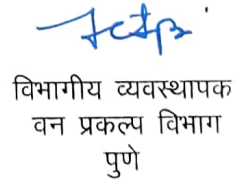 विभागीय व्यवस्थापक
वन प्रकल्प विभाग
पुणे